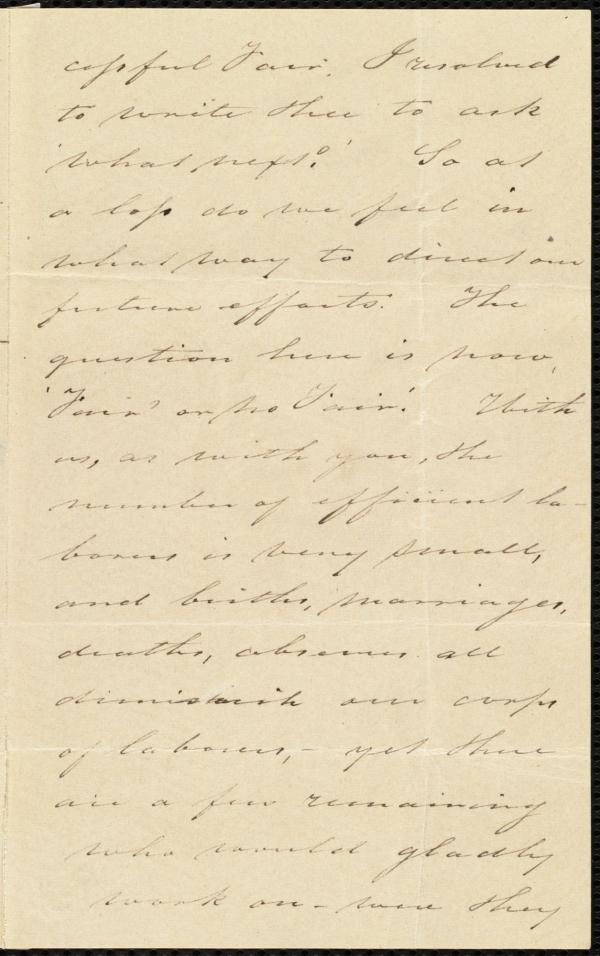 cessful Fair. I resolved
to write thee to ask
'what next?' So at
a loss do we feel in
what way to direct our
future efforts. The
question here is now,
'Fair' or no Fair'. With
us, as with you, the
number of efficient la-
borers is very small,
and births, marriages,
deaths, absences all
diminish our corps
of laborers, - yet there
are a few remaining
who would gladly
work on - were they